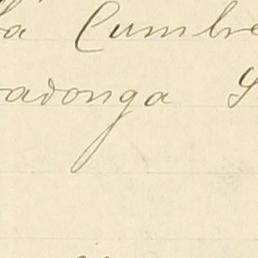 la Cumbre
adonga